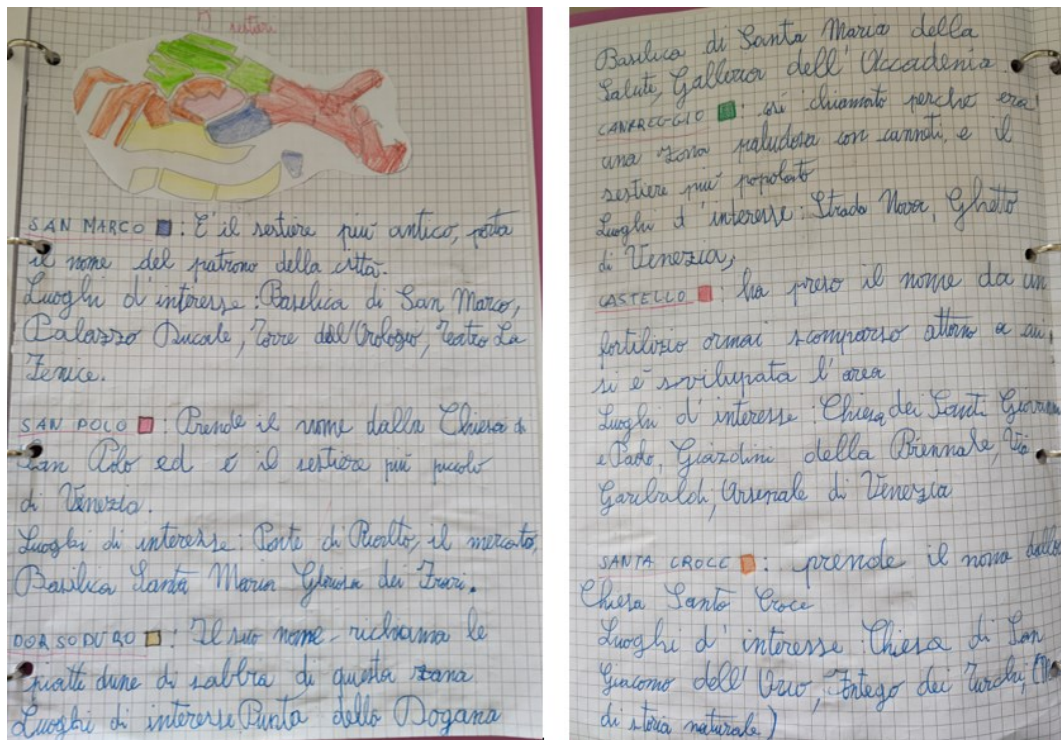 I sestieri
SAN MARCO : È il sestiere più antico, porta
il nome del patrono della città.
Luoghi d'interesse : Basilica di San Marco,
Palazzo Ducale, Torre dell'Orologio, Teatro La
Fenice.
SAN POLO : Prende il nome dalla Chiesa di
San Polo ed è il sestiere più piccolo
di Venezia.
Luoghi di interesse: Ponte di Rialto, il mercato,
Basilica Santa Maria Gloriosa dei Frari.
DORSODURO : Il suo nome richiama le
piatte dune di sabbia di questa zona.
Luoghi di interesse Punta della Dogana
Basilica di Santa Maria della
Salute, Galleria dell'Accademia.
CANAREGGIO : così chiamato perché era
una zona paludosa con canneti, e il
sestiere più popolato
Luoghi d'interesse: Strada Nova, Ghetto
di Venezia,
CASTELLO : ha preso il nome da un
fortilizio ormai scomparso attorno a cui
si è sviluppata l'area
Luoghi d'interesse : Chiesa dei Santi Giovanni
e Paolo, Giardini della Biennale, Via
Garibaldi, Arsenale di Venezia
SANTA CROCE : prende il nome dalla
Chiesa Santa Croce
Luoghi d'interesse Chiesa di San
Giacomo dell'Orio, Fontego dei Turchi,
di storia naturale)